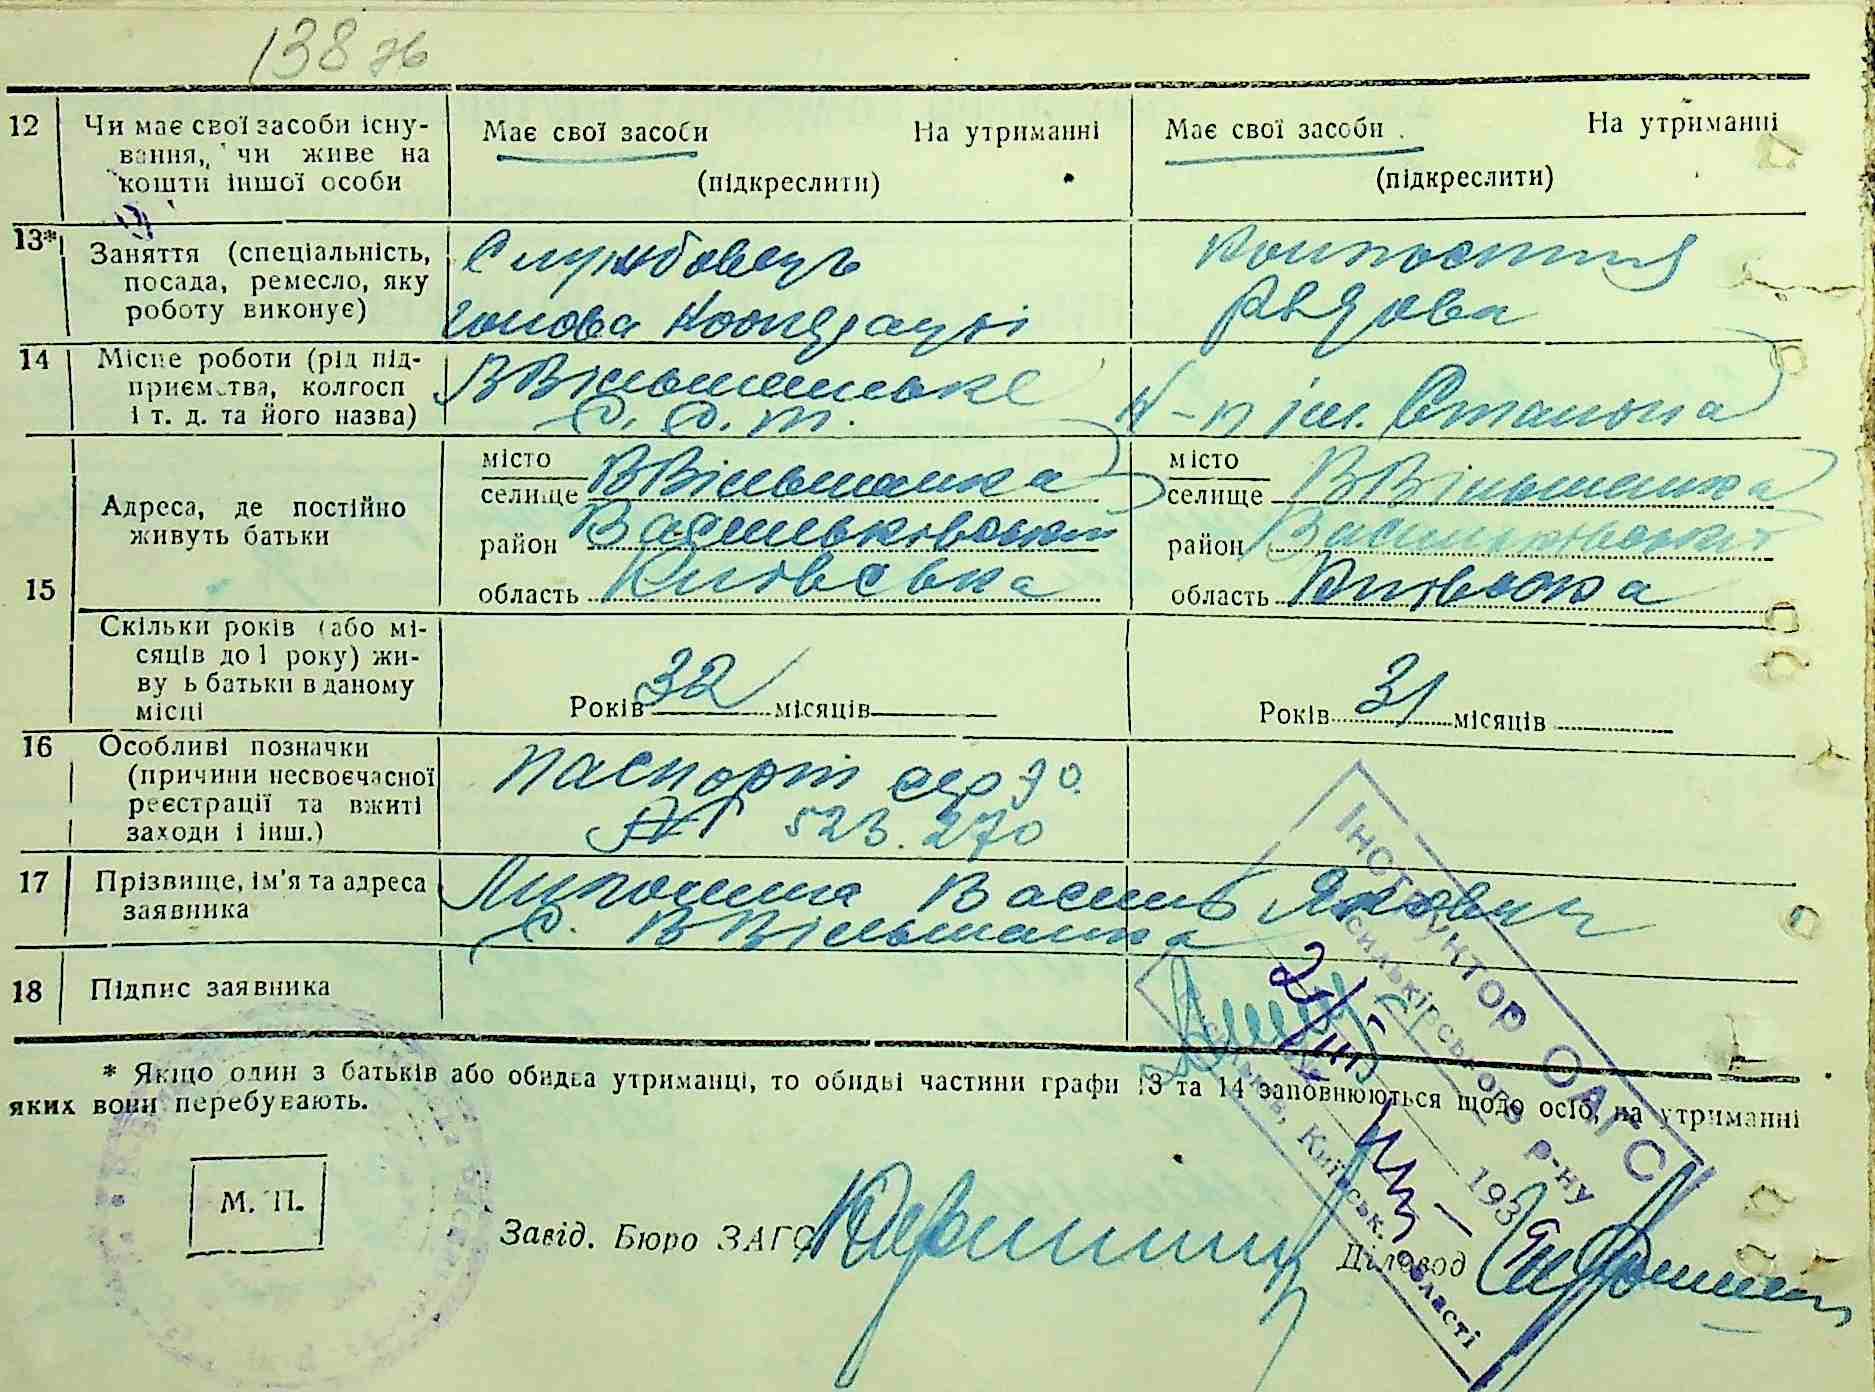 138 зв
12 Чи має свої засоби існу-
вання, чи живе на
кошти іншої особи
Має свої засоби На утриманні
(підкреслити)
Має свої засоби На утриманні
(підкреслити)
13* Заняття (спеціальність,
посада, ремесло, яку
роботу виконує)
Службовець
голова
Колгоспниця
рядова
14 Місце роботи (рід під-
приємства, колгосп
і т. д. та його назва)
ВВільшанське
С. С. т.
К-п ім. Сталіна
15 Адреса, де постійно
живуть батьки
місто
селище ВВільшанка
район Васильківський
область Київська
місто
селище ВВільшанка
район Васильківський
область Київська
Скільки років (або мі-
сяців до 1 року) жи-
ву ь батьки в даному
місці
Років 32 місяців
Років 31 місяців
16 Особливі позначки
(причини несвоєчасної
реєстрації та вжиті
заходи і інш.)
Паспорт сер
523.270
17 Прізвище, ім'я та адреса
заявника
Василь Якович
с. ВВільшанка
18 Підпис заявника
* Якщо один з батьків або обидва утриманці, то обидві частини графи 13 та 14 заповнюються щодо осіб, на утриманні
яких вони перебувають.
М. П.
Завід. Бюро ЗАГС
Діловод
Інструктор ОАГС
Васильківського р-ну
193
м. Васильків, Київськ. області